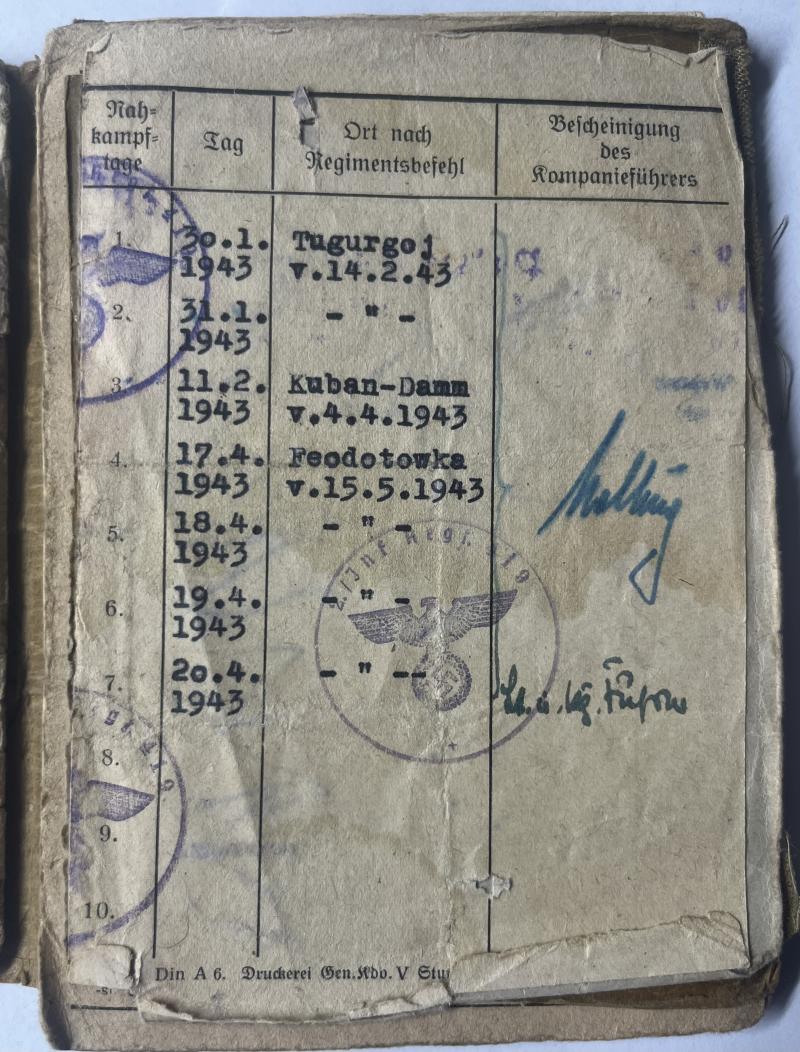 Nah=
kampf=
tage
Tag
Ort nach
Regimentsbefehl
Bescheinigung
des
Kompanieführers
1.
30.1.
1943
Tugurgoj
v.14.2.43
2.
31.1.
1943
- " -
3.
11.2.
1943
Kuban-Damm
v.4.4.1943
4.
17.4.
1943
Feodotowka
v.15.5.1943
5.
18.4.
1943
- " -
6.
19.4.
1943
- " -
7.
20.4.
1943
- " --
2./Inf Regt. 419
Lt. u. Kp. Führer
8.
9.
10.
Regt 419
Din A 6. Druckerei Gen.Kdo. V Stu